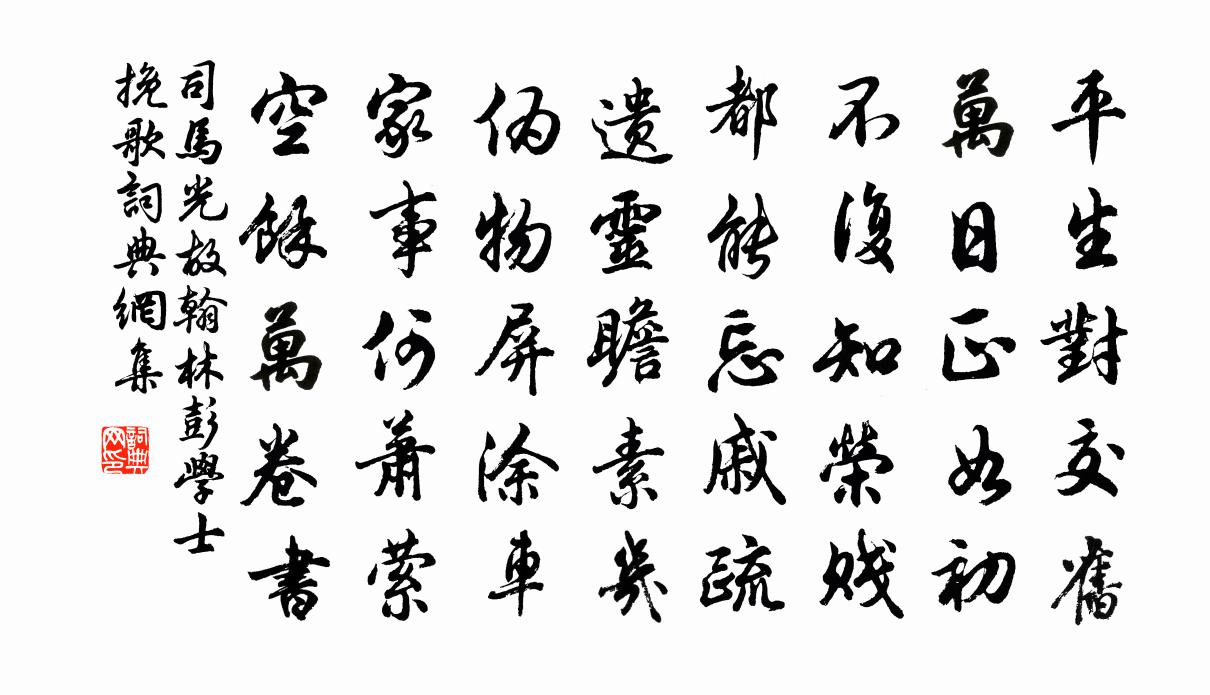 平生對交舊
萬日正如初
不復知榮賤
都能忘戚疏
遺靈瞻素幾
伪物屏涂車
家事何蕭索
空餘萬卷書
司馬光故翰林彭學士
挽歌詞典網集
詞典
网印